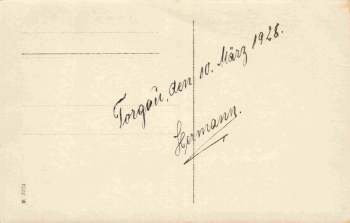 Torgau, den 10. März 1928.
Hermann.